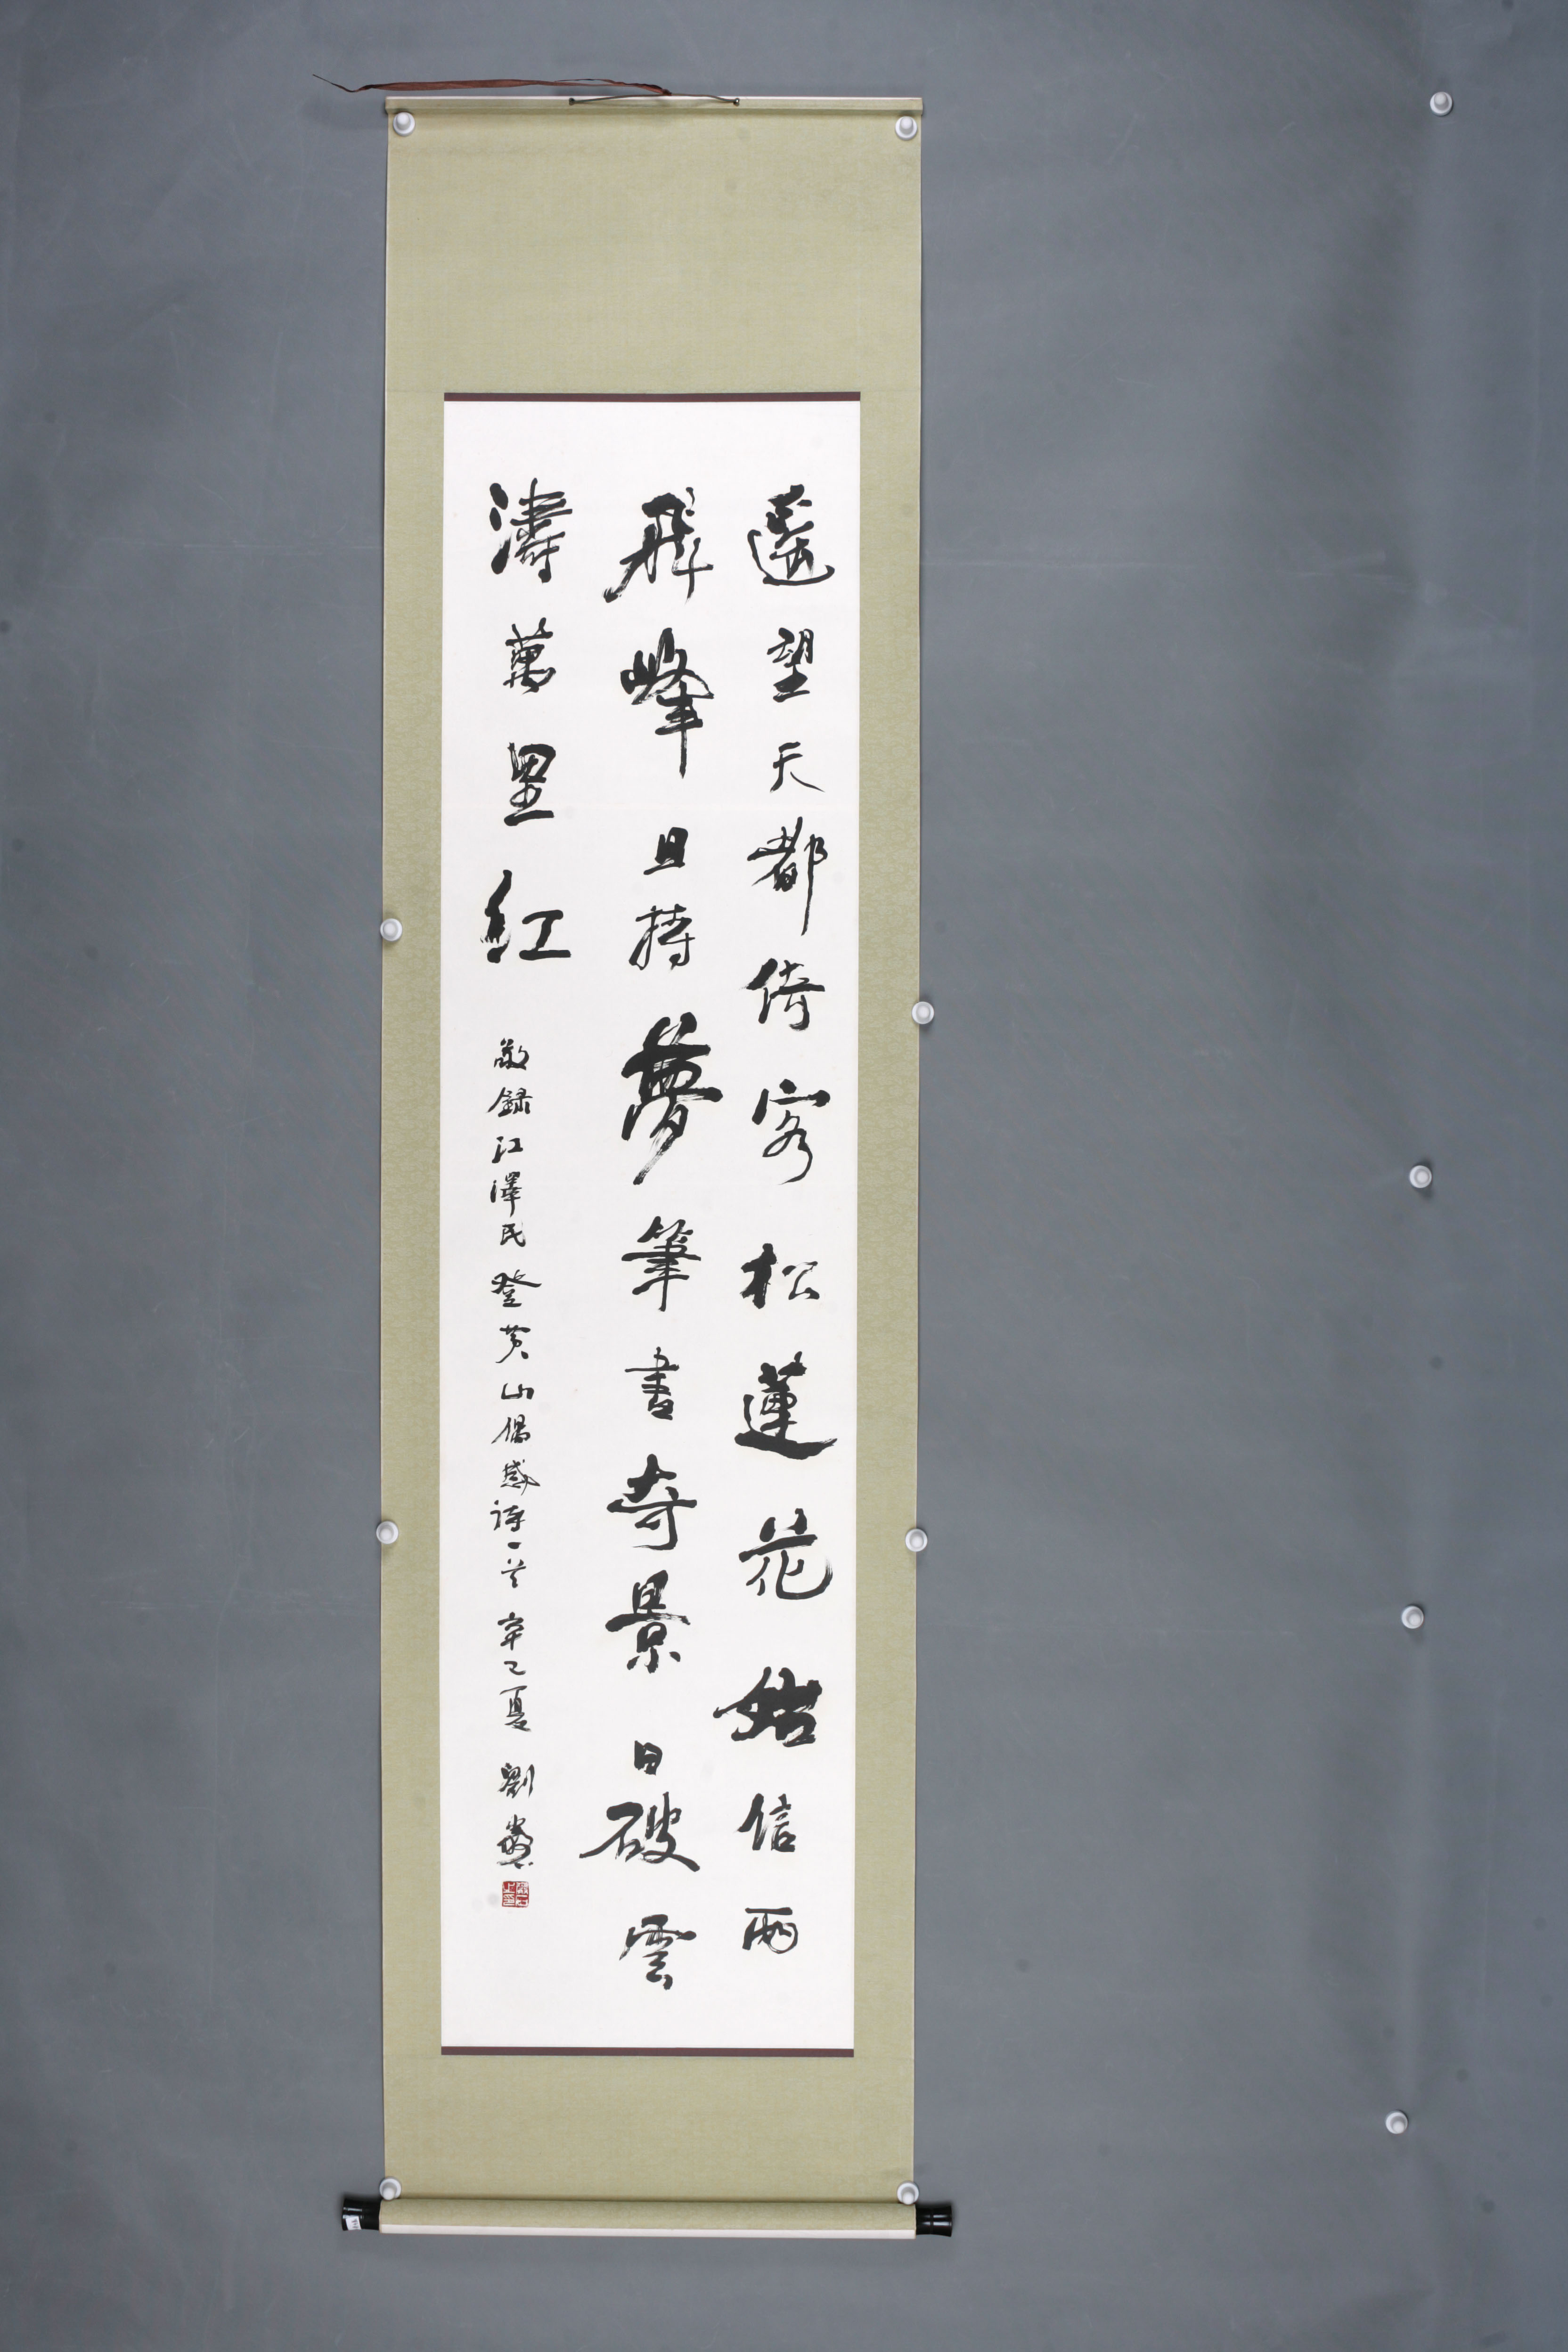 遥望天都倚客松蓮花始信兩
飛峰且持夢筆書奇景日破雲
濤萬里紅
敬録江澤民登黄山偶感詩一首 辛巳夏 劉